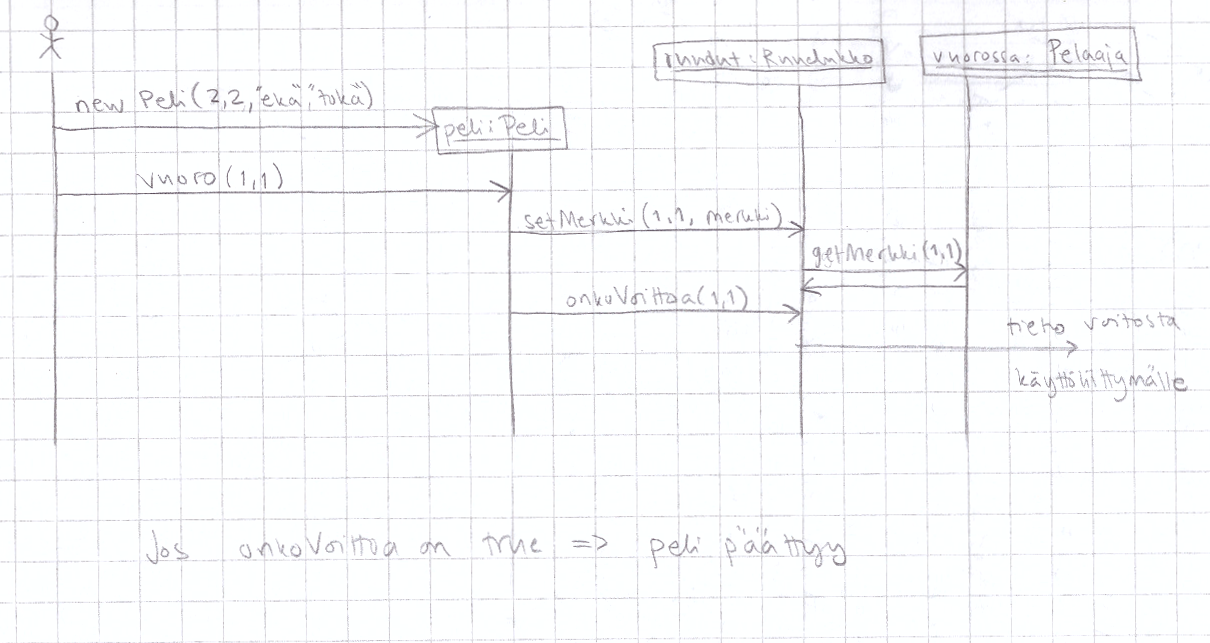 ruudut : Ruudukko
vuorossa: Pelaaja
new Peli(2,2,"eka","toka")
peli: Peli
vuoro(1,1)
setMerkki(1,1, merkki)
getMerkki(1,1)
onkoVoittoa(1,1)
tieto voitosta
käyttöliittymälle
Jos onkoVoittoa on true => peli päättyy